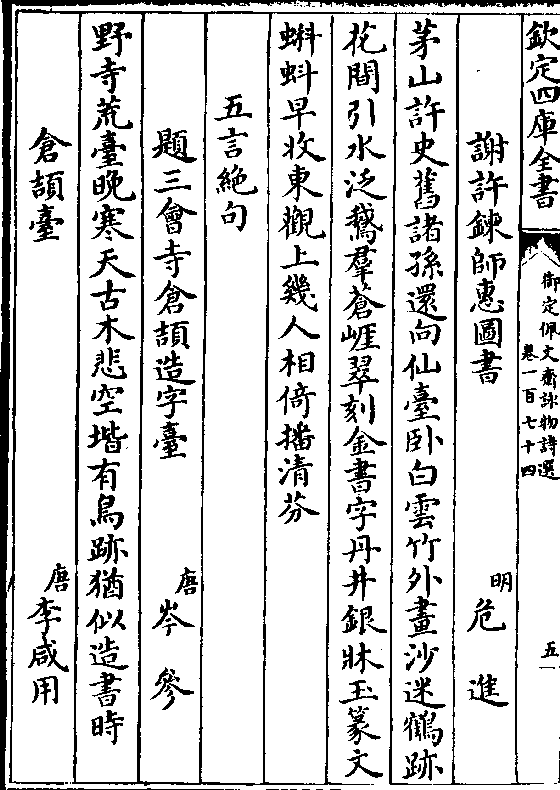 欽定四庫全書
御定佩文齋詠物詩選
卷一百七十四
五
謝許鍊師惠圖書
明
危進
茅山許史舊諸孫還向仙臺卧白雲竹外畫沙迷鶴跡
花間引水泛鵞羣蒼崕翠刻金書字丹井銀牀玉篆文
蝌蚪早收東觀上幾人相倚播清芬
五言絶句
題三會寺倉頡造字臺
唐
岑參
野寺荒臺晚寒天古木悲空堦有鳥跡猶似造書時
倉頡臺
唐
李咸用